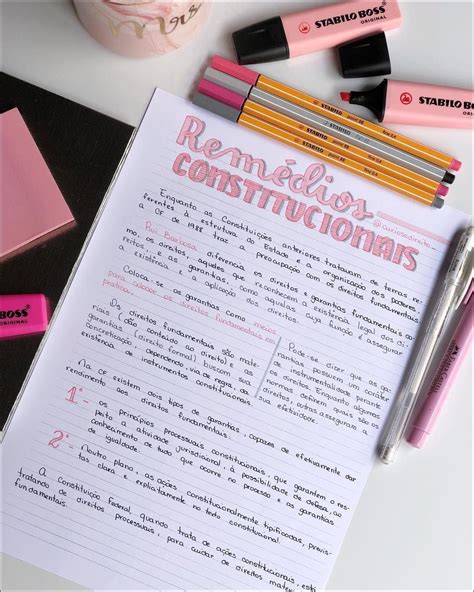 STABILO BOSS
ORIGINAL
STABILO BOSS
ORIGINAL
Remédios
CONSTITUCIONAIS
Enquanto as Constituições anteriores tratavam de temas re-
ferentes à estrutura do Estado e a organização dos poderes,
a CF de 1988 traz a preocupação com os direitos fundamentais
Rui Barbosa diferencia os direitos e garantias fundamentais co-
mo, os direitos, aqueles que reconhecem a existência legal dos di-
reitos, e as garantias, como aquelas cuja função é assegurar
a existência e a aplicação dos direitos.
Coloca-se as garantias como meios
para colocar os direitos fundamentais em
prática.
Os direitos fundamentais são mate-
riais (são conteúdo ao direito) e as
garantias (direito formal) buscam sua
concretização, dependendo, via de regra, da
existência de instrumentos constitucionais.
Pode-se dizer que as ga-
rantias possuem um caráter
de instrumentalidade perante
os direitos. Enquanto algumas
normas definem quais são os
direitos, outras asseguram a
sua efetividade.
Na CF existem dois tipos de garantias, capazes de efetivamente dar
rendimento aos direitos fundamentais.
1º- os princípios processuais constitucionais, que garantem o res-
peito à atividade jurisdicional, à possibilidade de defesa, ao
conhecimento de tudo que ocorre no processo e as garantias
de igualdade.
2º- Noutro plano, as ações constitucionalmente tipificadas, previs-
tas clara e explicitamente no texto constitucional.
A Constituição Federal, quando trata de ações constitucionais, está
tratando de direitos processuais, para cuidar de direitos materiais
fundamentais.
BOSS
ORIGINAL